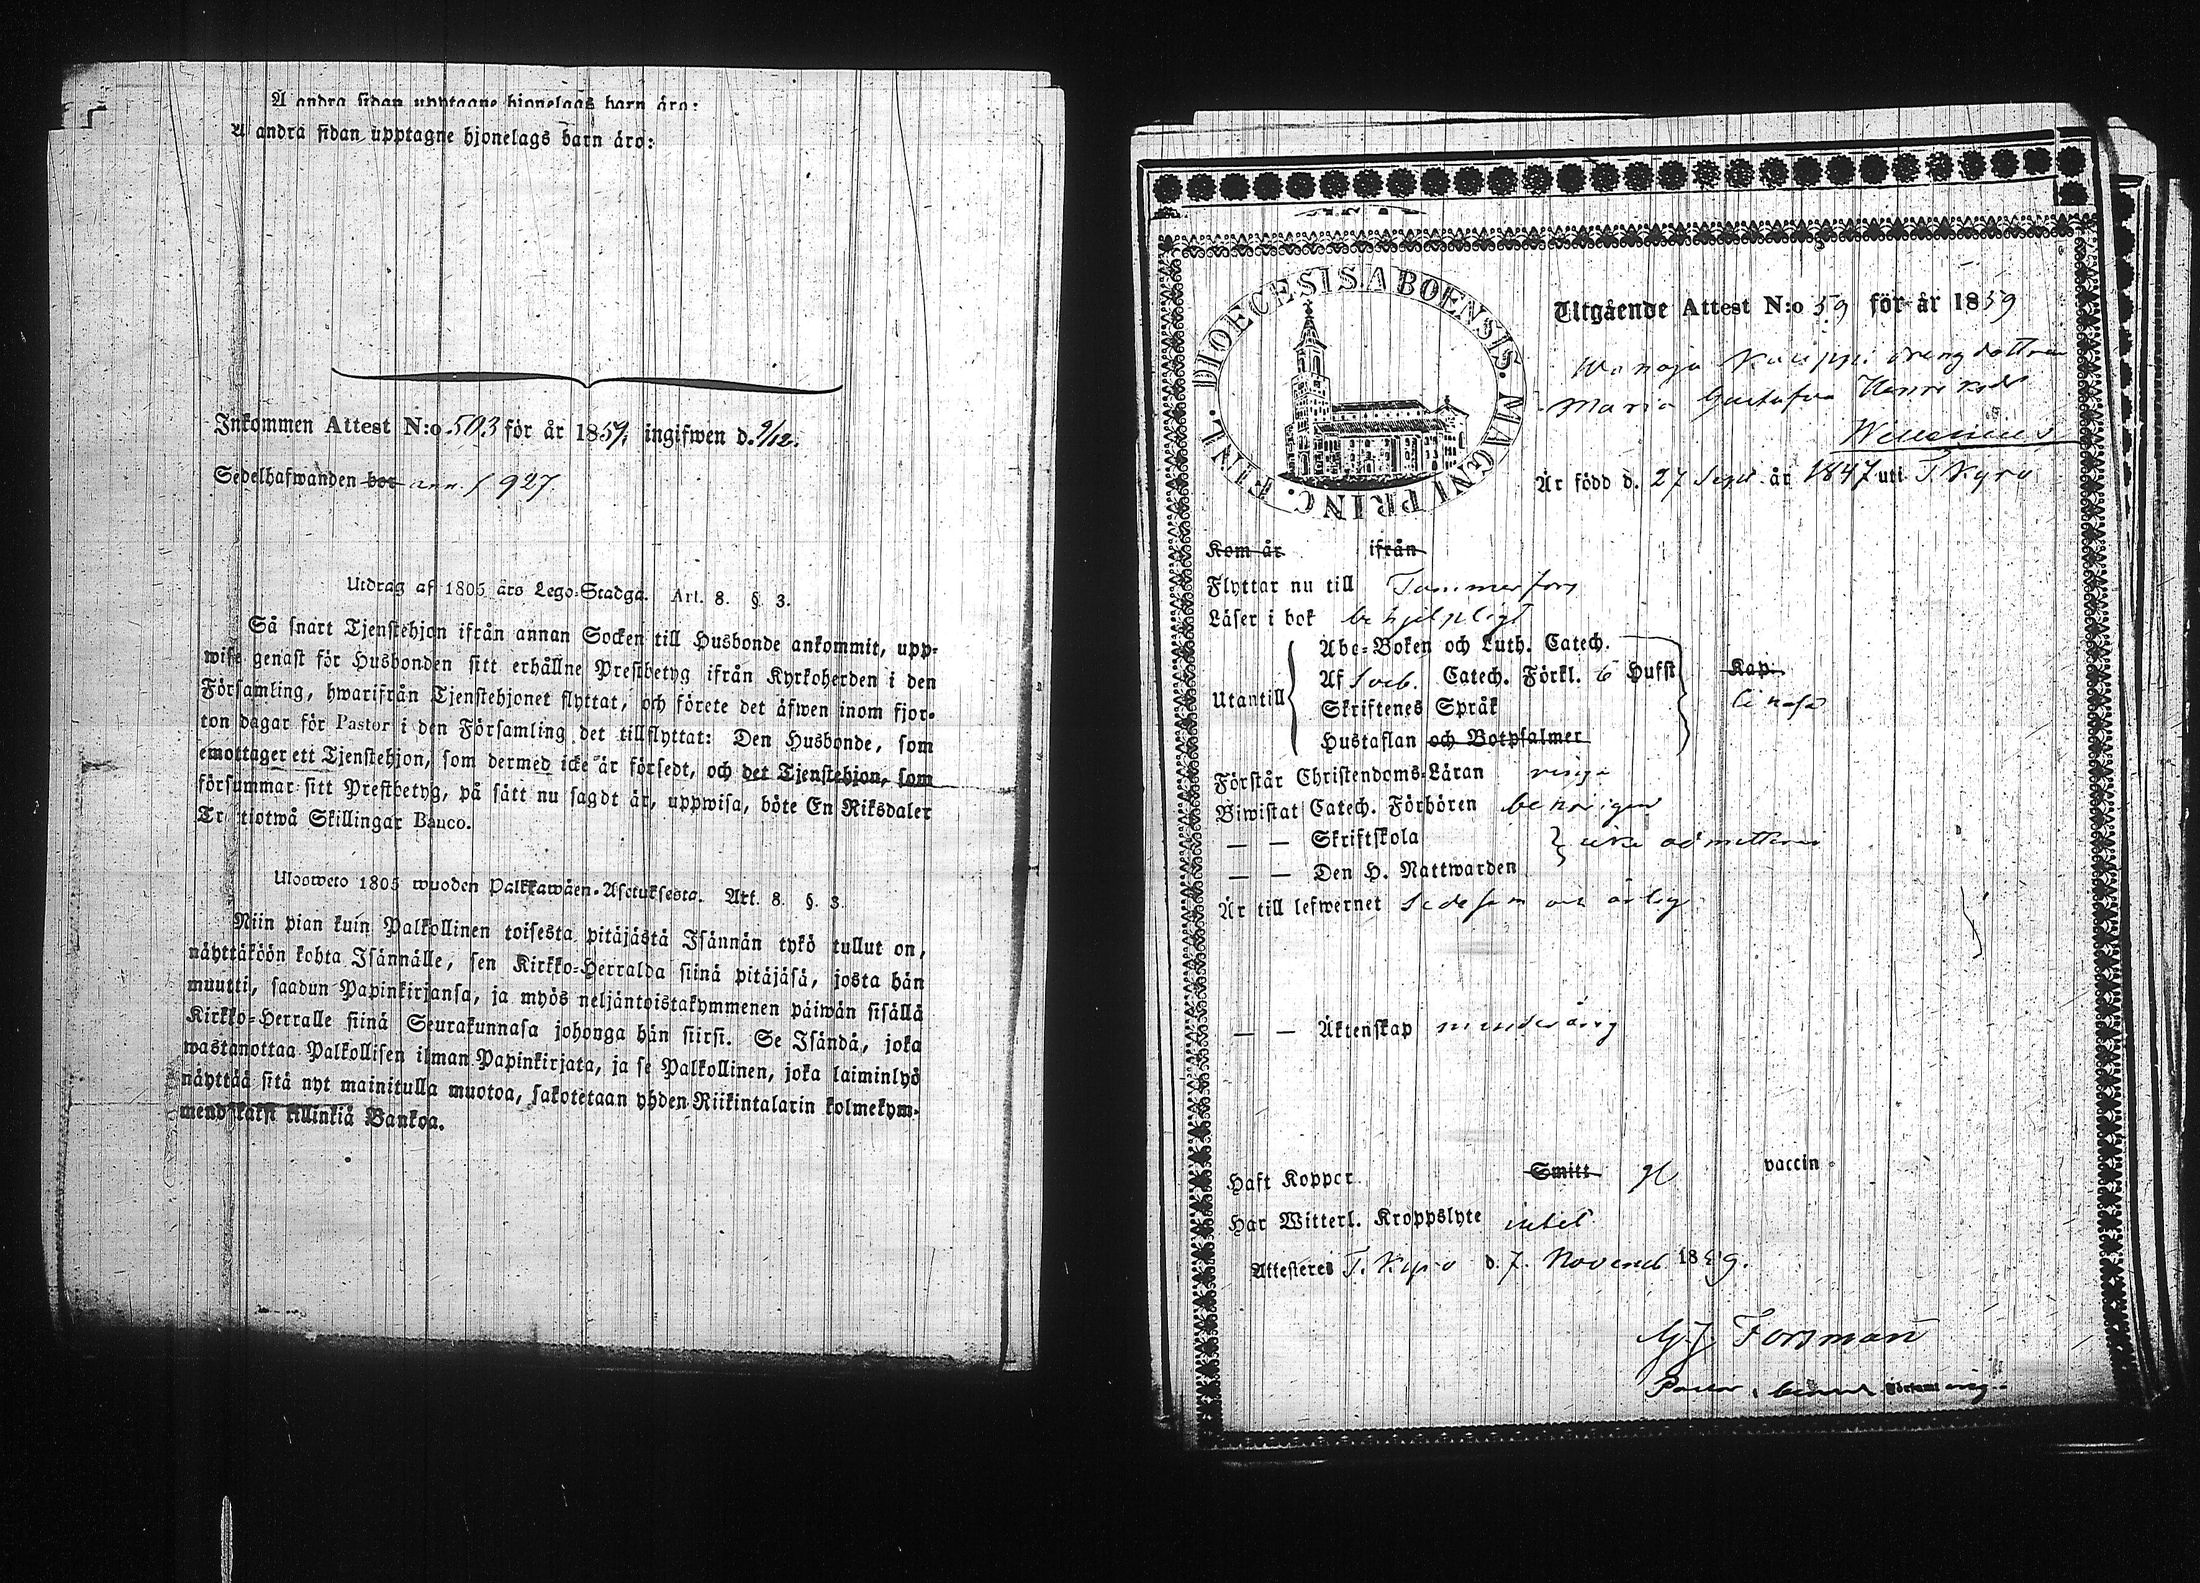 Å andra sidan upptagne hjonelags barn äro:
Å andra sidan upptagne hjonelags barn äro:
Inkommen Attest N:o 503 för år 1859, ingifwen d. 9/12.
Sedelhafwanden bor ann. / 927
Utdrag af 1805 års Lego-Stadga. Art. 8. §. 3.
Så snart Tjenstehjon ifrån annan Socken till Husbonde ankommit, upp-
wise genast för Husbonden sitt erhållne Prestbetyg ifrån Kyrkoherden i den
Församling, hwarifrån Tjenstehjonet flyttat, och förete det äfwen inom fjor-
ton dagar för Pastor i den Församling det tillflyttat: Den Husbonde, som
emottager ett Tjenstehjon, som dermed icke är försedt, och det Tjenstehjon, som
försummar sitt Prestbetyg, på sätt nu sagdt är, uppwisa, böte En Riksdaler
Trettiotwå Skillingar Banco.
Ulosweto 1805 wuoden Palkkawäen-Asetuksesta. Art. 8. §. 3.
Niin pian kuin Palkollinen toisesta pitäjästä Isännän tykö tullut on,
näyttäköön kohta Isännälle, sen Kirkko-Herralda siinä pitäjäsä, josta hän
muutti, saadun Papinkirjansa, ja myös neljäntoistakymmenen päiwän sisällä
Kirkko-Herralle siinä Seurakunnasa johonga hän siirsi. Se Isändä, joka
wastanottaa Palkollisen ilman Papinkirjata, ja se Palkollinen, joka laiminlyö
näyttää sitä nyt mainitulla muotoa, sakotetaan yhden Riikintalarin kolmekym-
mend kaksi killinkiä Bankoa.
DIOECESIS ABOENSIS. MAGNI PRINC. FINL.
Utgående Attest N:o 59 för år 1859
Kauppi drengdottren
Maria Gustafva Henriksdr
Är född d. 27 Sept. år 1847 uti T. Kyro
Kom år ifrån
Flyttar nu till Tammerfors
Läser i bok behjelpligt
Utantill
Abc-Boken och Luth. Catech.
Af Sveb. Catech. Förkl. 6 Hufst Kap.
Skriftenes Språk
Hustaflan och Botpsalmer
Förstår Christendoms-Läran ringa
Biwistat Catech. Förhören behörigen
— — Skriftskola
} icke admitterad
— — Den H. Nattwarden
Är till lefwernet sedesam och ärlig
— — Äktenskap minderårig
Haft Koppor Smitt vaccin
Har Witterl. Kroppslyte intet
Attesteres T. Kyro d. 7. Novemb. 1859.
G. J. Forsman
Pastor